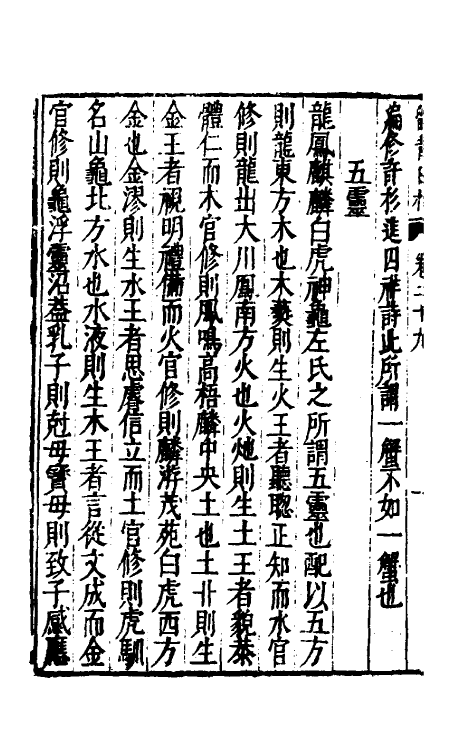 卷二十九
許彬進四祥詩此所謂一蟹不如一蟹也
五靈
龍鳳麒麟白虎神龜左氏之所謂五靈也配以五方
則龍東方木也木羙則生火王者聽聦正知而水官
修則龍出大川鳳南方火也火炧則生土王者貌恭
體仁而木官修則鳳鳴高梧麟中央土也土廾則生
金王者視明禮備而火官修則麟游茂苑白虎西方
金也金漻則生水王者思睿信立而土官修則虎馴
名山龜北方水也水液則生木王者言從文成而金
官修則龜浮靈沼葢乳子則尅母寳母則致子感應